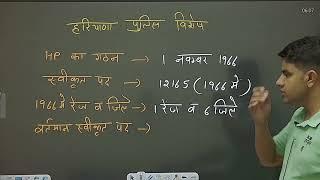 06:07
हरियाणा पुलिस विशेष
HP का गठन → 1 नवम्बर 1966
स्वीकृत पद → 12165 (1966 में)
1966 में रेंज व जिले → 1 रेंज व 6 जिले
वर्तमान स्वीकृत पद →